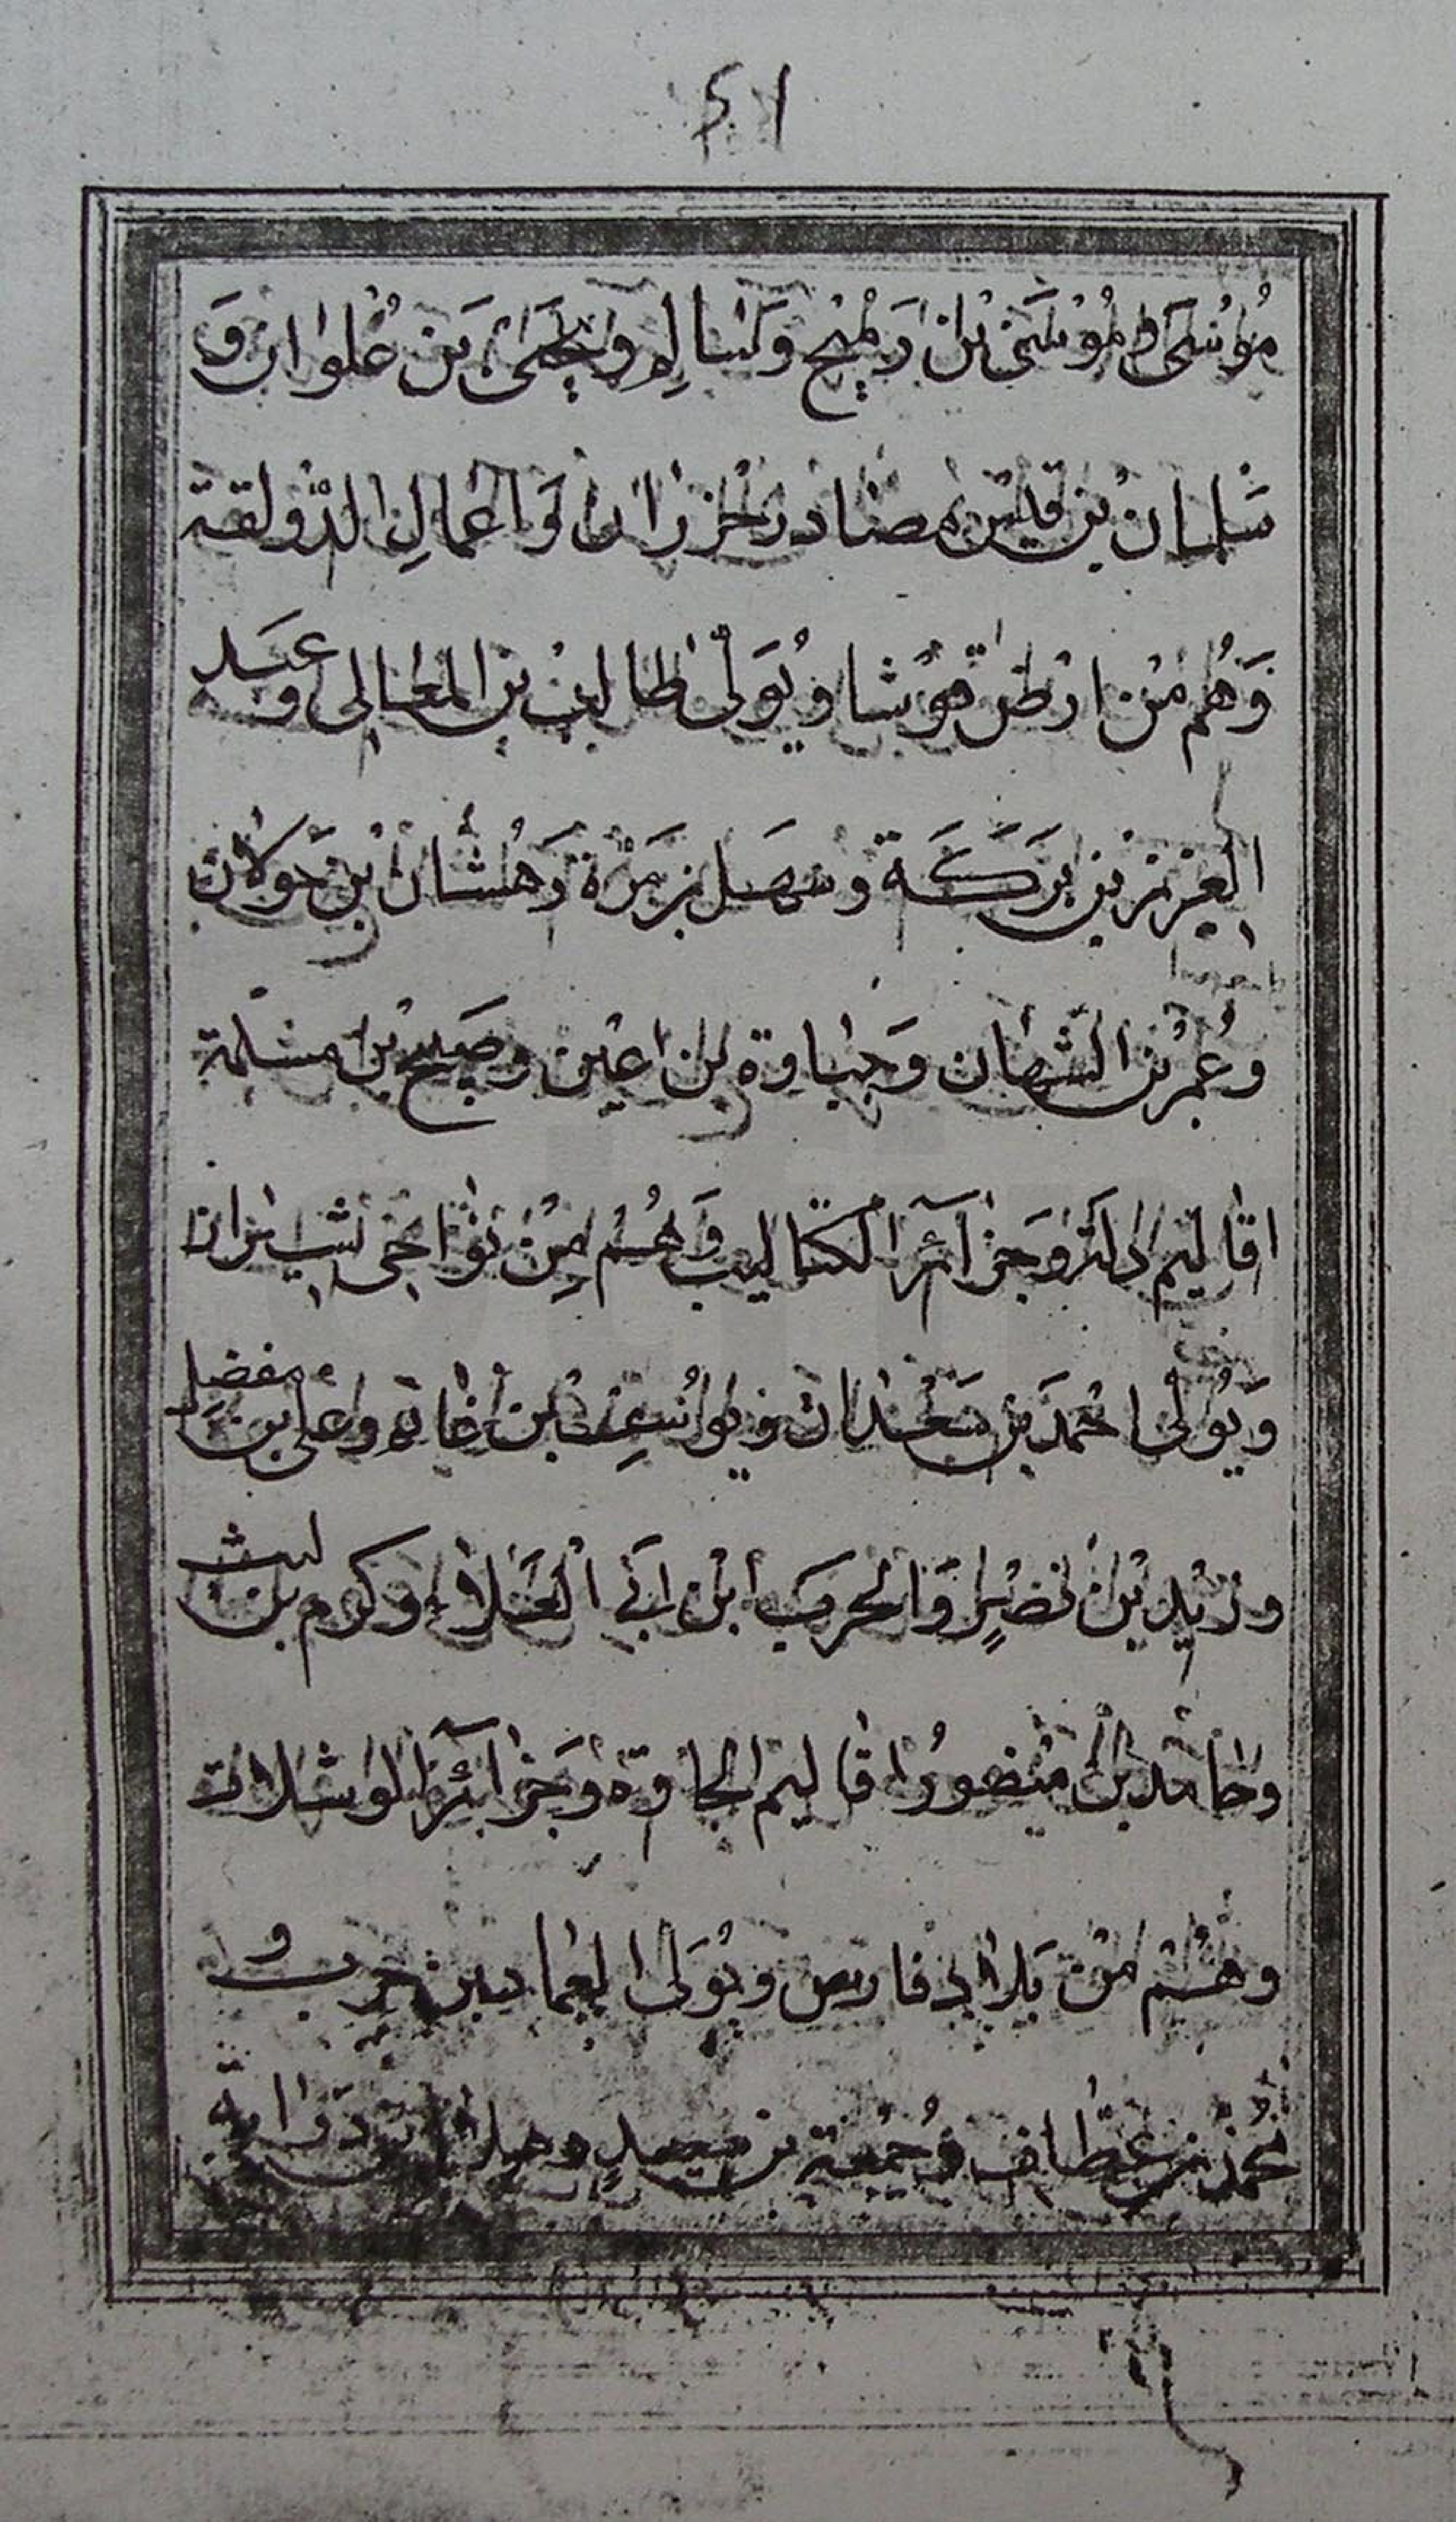 ٤١
مُوسَى و مُوسَى بْن رَمْيح وَسَالِم وَيَحْيَى بَن عُلوان وَ
سَلمان بن قيس مصادر خزران وَاعمالِ الدَّولقة
وَهُم مْن ارْض هوُشا وُيُوَلّى طالب بن المعالى وعبد
العزيز بن بَرَكَة وسهَل بن مَرْة وَهُشام ابن خولان
وعُمر بن الشهان وَجباوة بن اعين وصَبيح بن مسْلمة
اقاليم الدلتَ وجزَآئر الكتاليب وَهُم مِن نوَاحى شيران
وَيُولّى احْمَد بَن سَعْدان ويوُسِف بن غانم وعلى بن مفضل
وزيد بن نصْيرٍ وَالحرب ابن ابَى الْعَلاء وكرم بن ليث
وحامد بن منصورُ اقاليم الجاوة وَجزَآئر الوشلات
وهُم مْن بَلاد فارس ويُوَلى العماد بن حرب و
محمد بن غطّاف وُجُمعة بن سعيدٍ